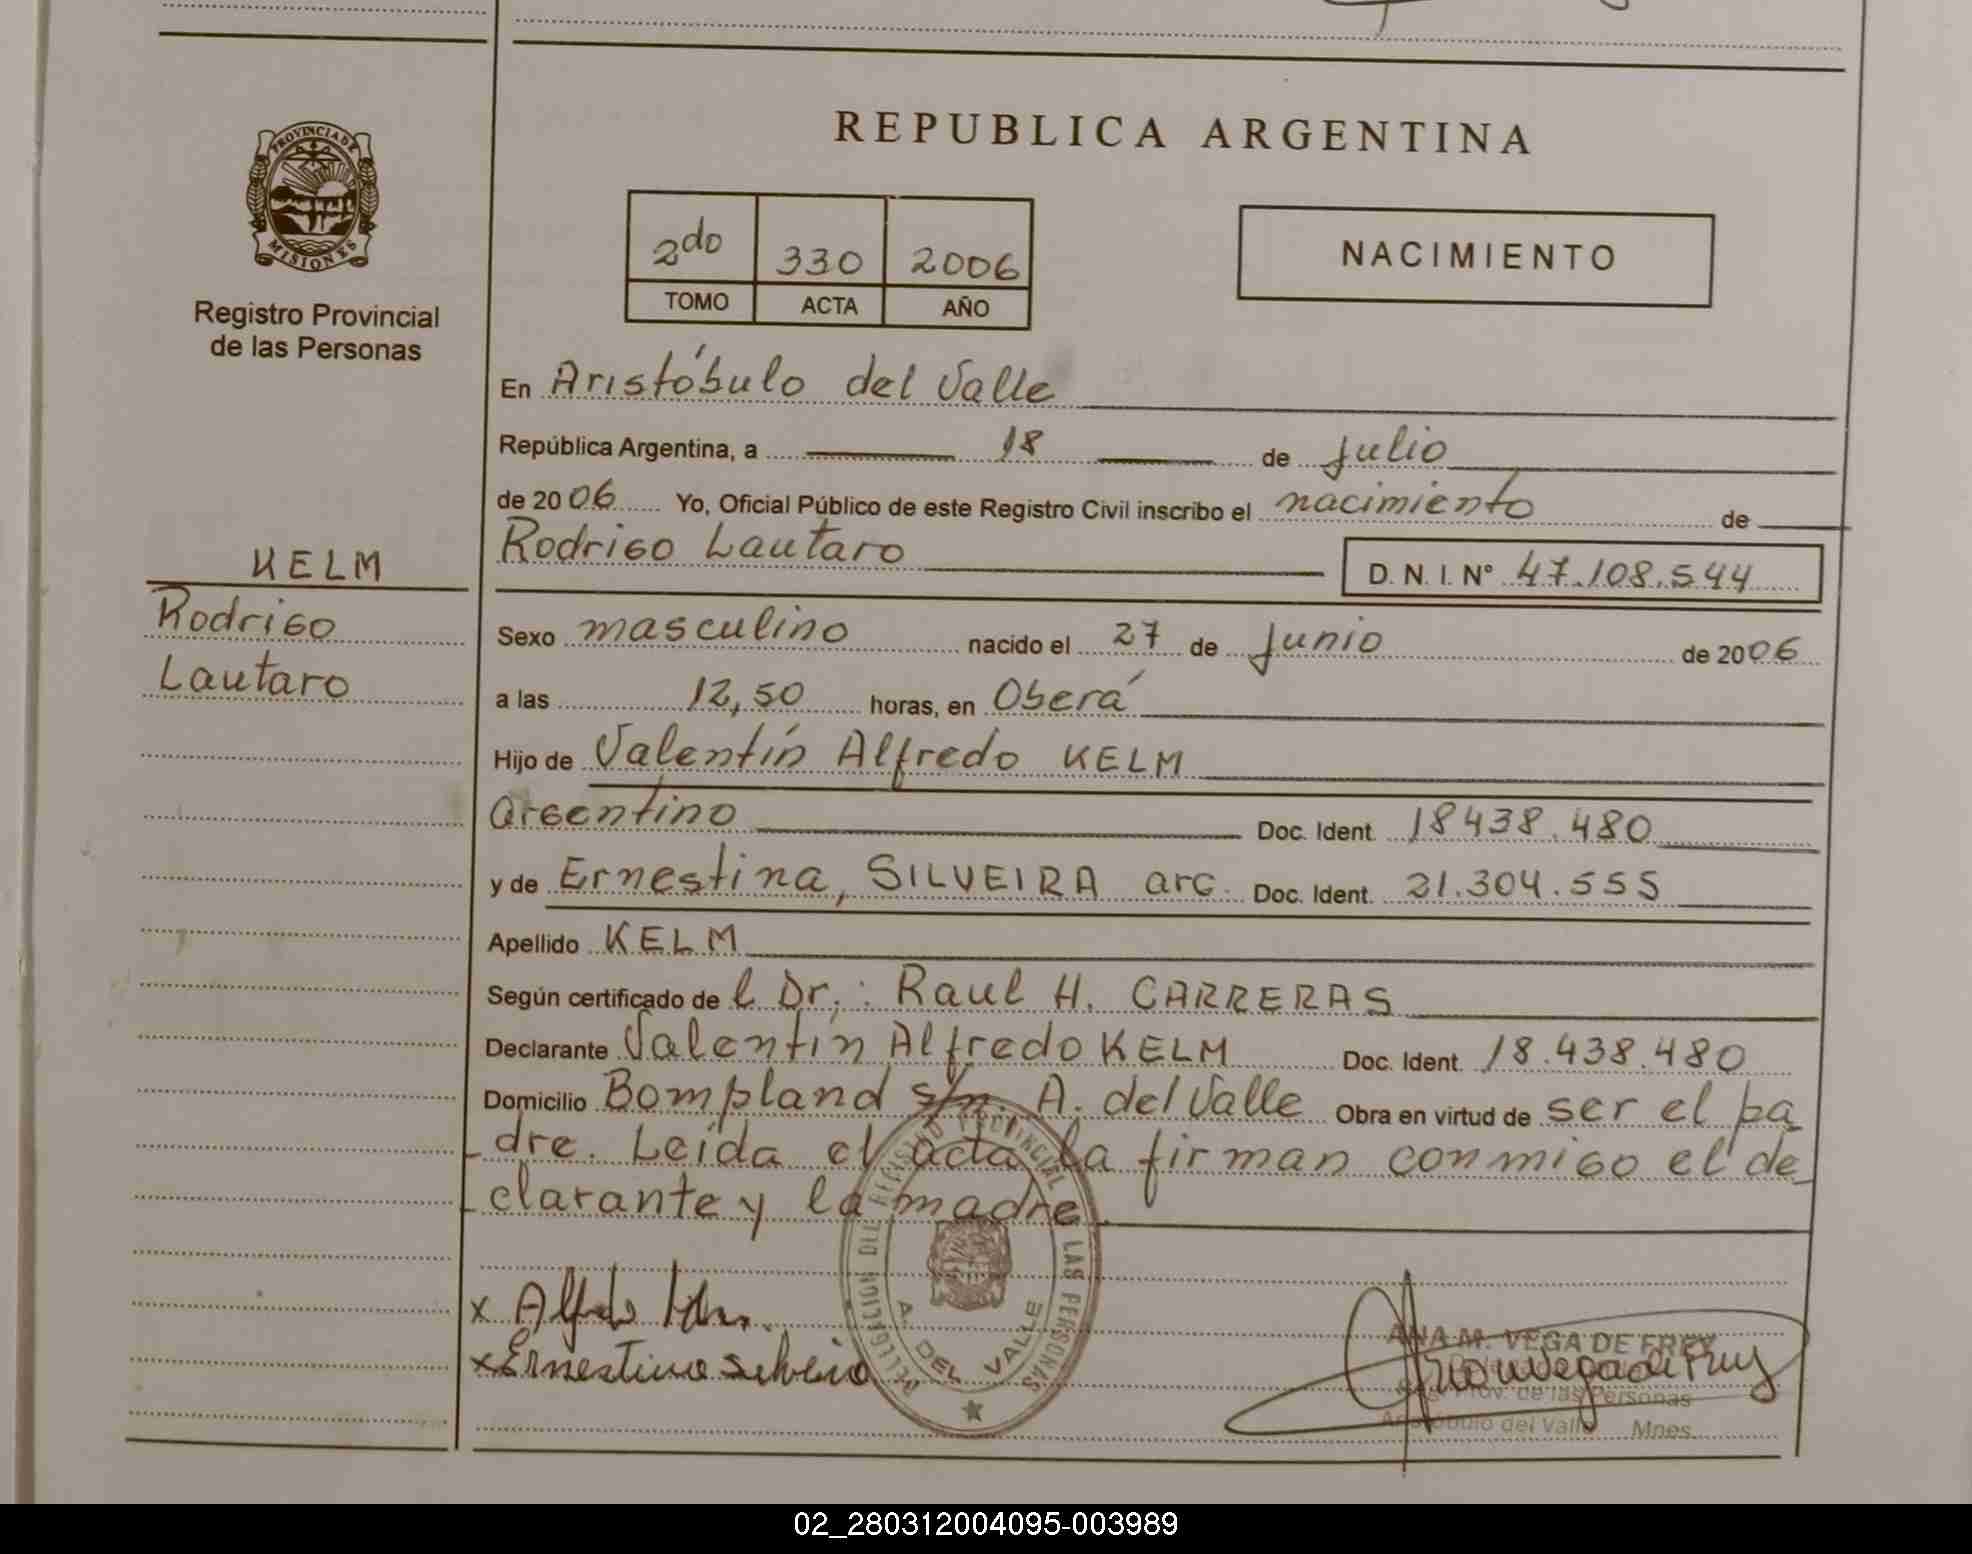 REPUBLICA ARGENTINA
PROVINCIA DE
MISIONES
Registro Provincial
de las Personas
2do 330 2006
TOMO ACTA AÑO
NACIMIENTO
En Aristóbulo del Valle
República Argentina, a 18 de Julio
de 2006 Yo, Oficial Público de este Registro Civil inscribo el nacimiento de
Rodrigo Lautaro D. N. I. N° 47.108.544
KELM
Rodrigo
Lautaro
Sexo masculino nacido el 27 de Junio de 2006
a las 12,50 horas, en Oberá
Hijo de Valentín Alfredo KELM
argentino Doc. Ident. 18438.480
y de Ernestina, SILVEIRA arg. Doc. Ident. 21.304.555
Apellido KELM
Según certificado de l Dr.: Raul H. CARRERAS
Declarante Valentín Alfredo KELM Doc. Ident. 18.438.480
Domicilio Bompland s/n. A. del Valle Obra en virtud de ser el pa
dre. Leída el acta la firman conmigo el de
clarante y la madre.
DELEGACION DEL REGISTRO PROVINCIAL DE LAS PERSONAS
A. DEL VALLE
x Alfredo
x Ernestina Silveira
ANA M. VEGA DE FREY
Prov. de las Personas
Aristóbulo del Valle Mnes.
02_280312004095-003989